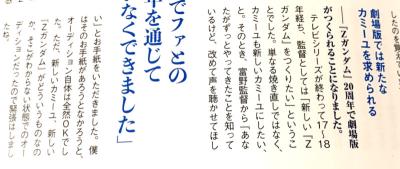 劇場版では新たな
カミーユを求められる
――『Zガンダム』20周年で劇場版
がつくられることになりました。
テレビシリーズが終わって17~18
年経ち、監督としては「新しい『Z
ガンダム』をつくりたい」というこ
とでした。単なる焼き直しではなく、
カミーユも新しいカミーユにしたい、
と。そのとき、富野監督から「あな
たがずっとやってきたことを知って
いるけど、改めて声を聴かせてほし
でファとの
を通じて
なくできました」
い」とお手紙をいただきました。僕
はそのお手紙があろうとなかろうと、
オーディション自体は全然OKでし
た。ただ、新しいカミーユ、新しい
『Zガンダム』がどういうものなの
か、そこがわからない状態でのオー
ディションだったので緊張はしまし